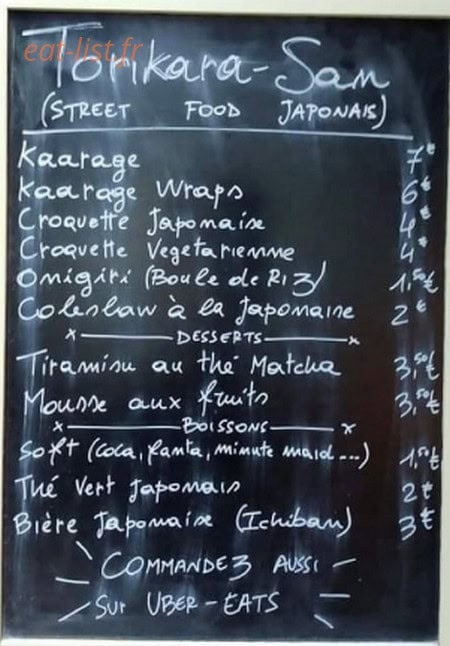 eat-list.fr
Torikara-San
(STREET FOOD JAPONAIS)
Kaarage 7€
Kaarage Wraps 6€
Croquette Japonaise 4€
Croquette Vegetarienne 4€
Onigiri (Boule de Riz) 1,50€
Coleslaw à la Japonaise 2€
x DESSERTS x
Tiramisu au thé Matcha 3,50€
Mousse aux fruits 3,50€
x BOISSONS x
Soft (Coca, fanta, minute maid ...) 1,50€
Thé Vert Japonais 2€
Bière Japonaise (Ichiban) 3€
COMMANDEZ AUSSI
SUR UBER-EATS